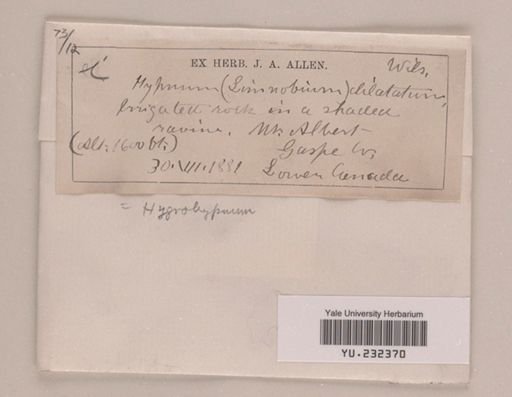 73/12
EX HERB. J. A. ALLEN.
Wils,
Hypnum (Limnobium) dilatatum,
Irrigated rock in a shaded
ravine. Mt. Albert
(Alt. 1600 ft.) Gaspe Co,
30.VII.1881 Lower Canada
= Hygrohypnum
Yale University Herbarium
YU.232370